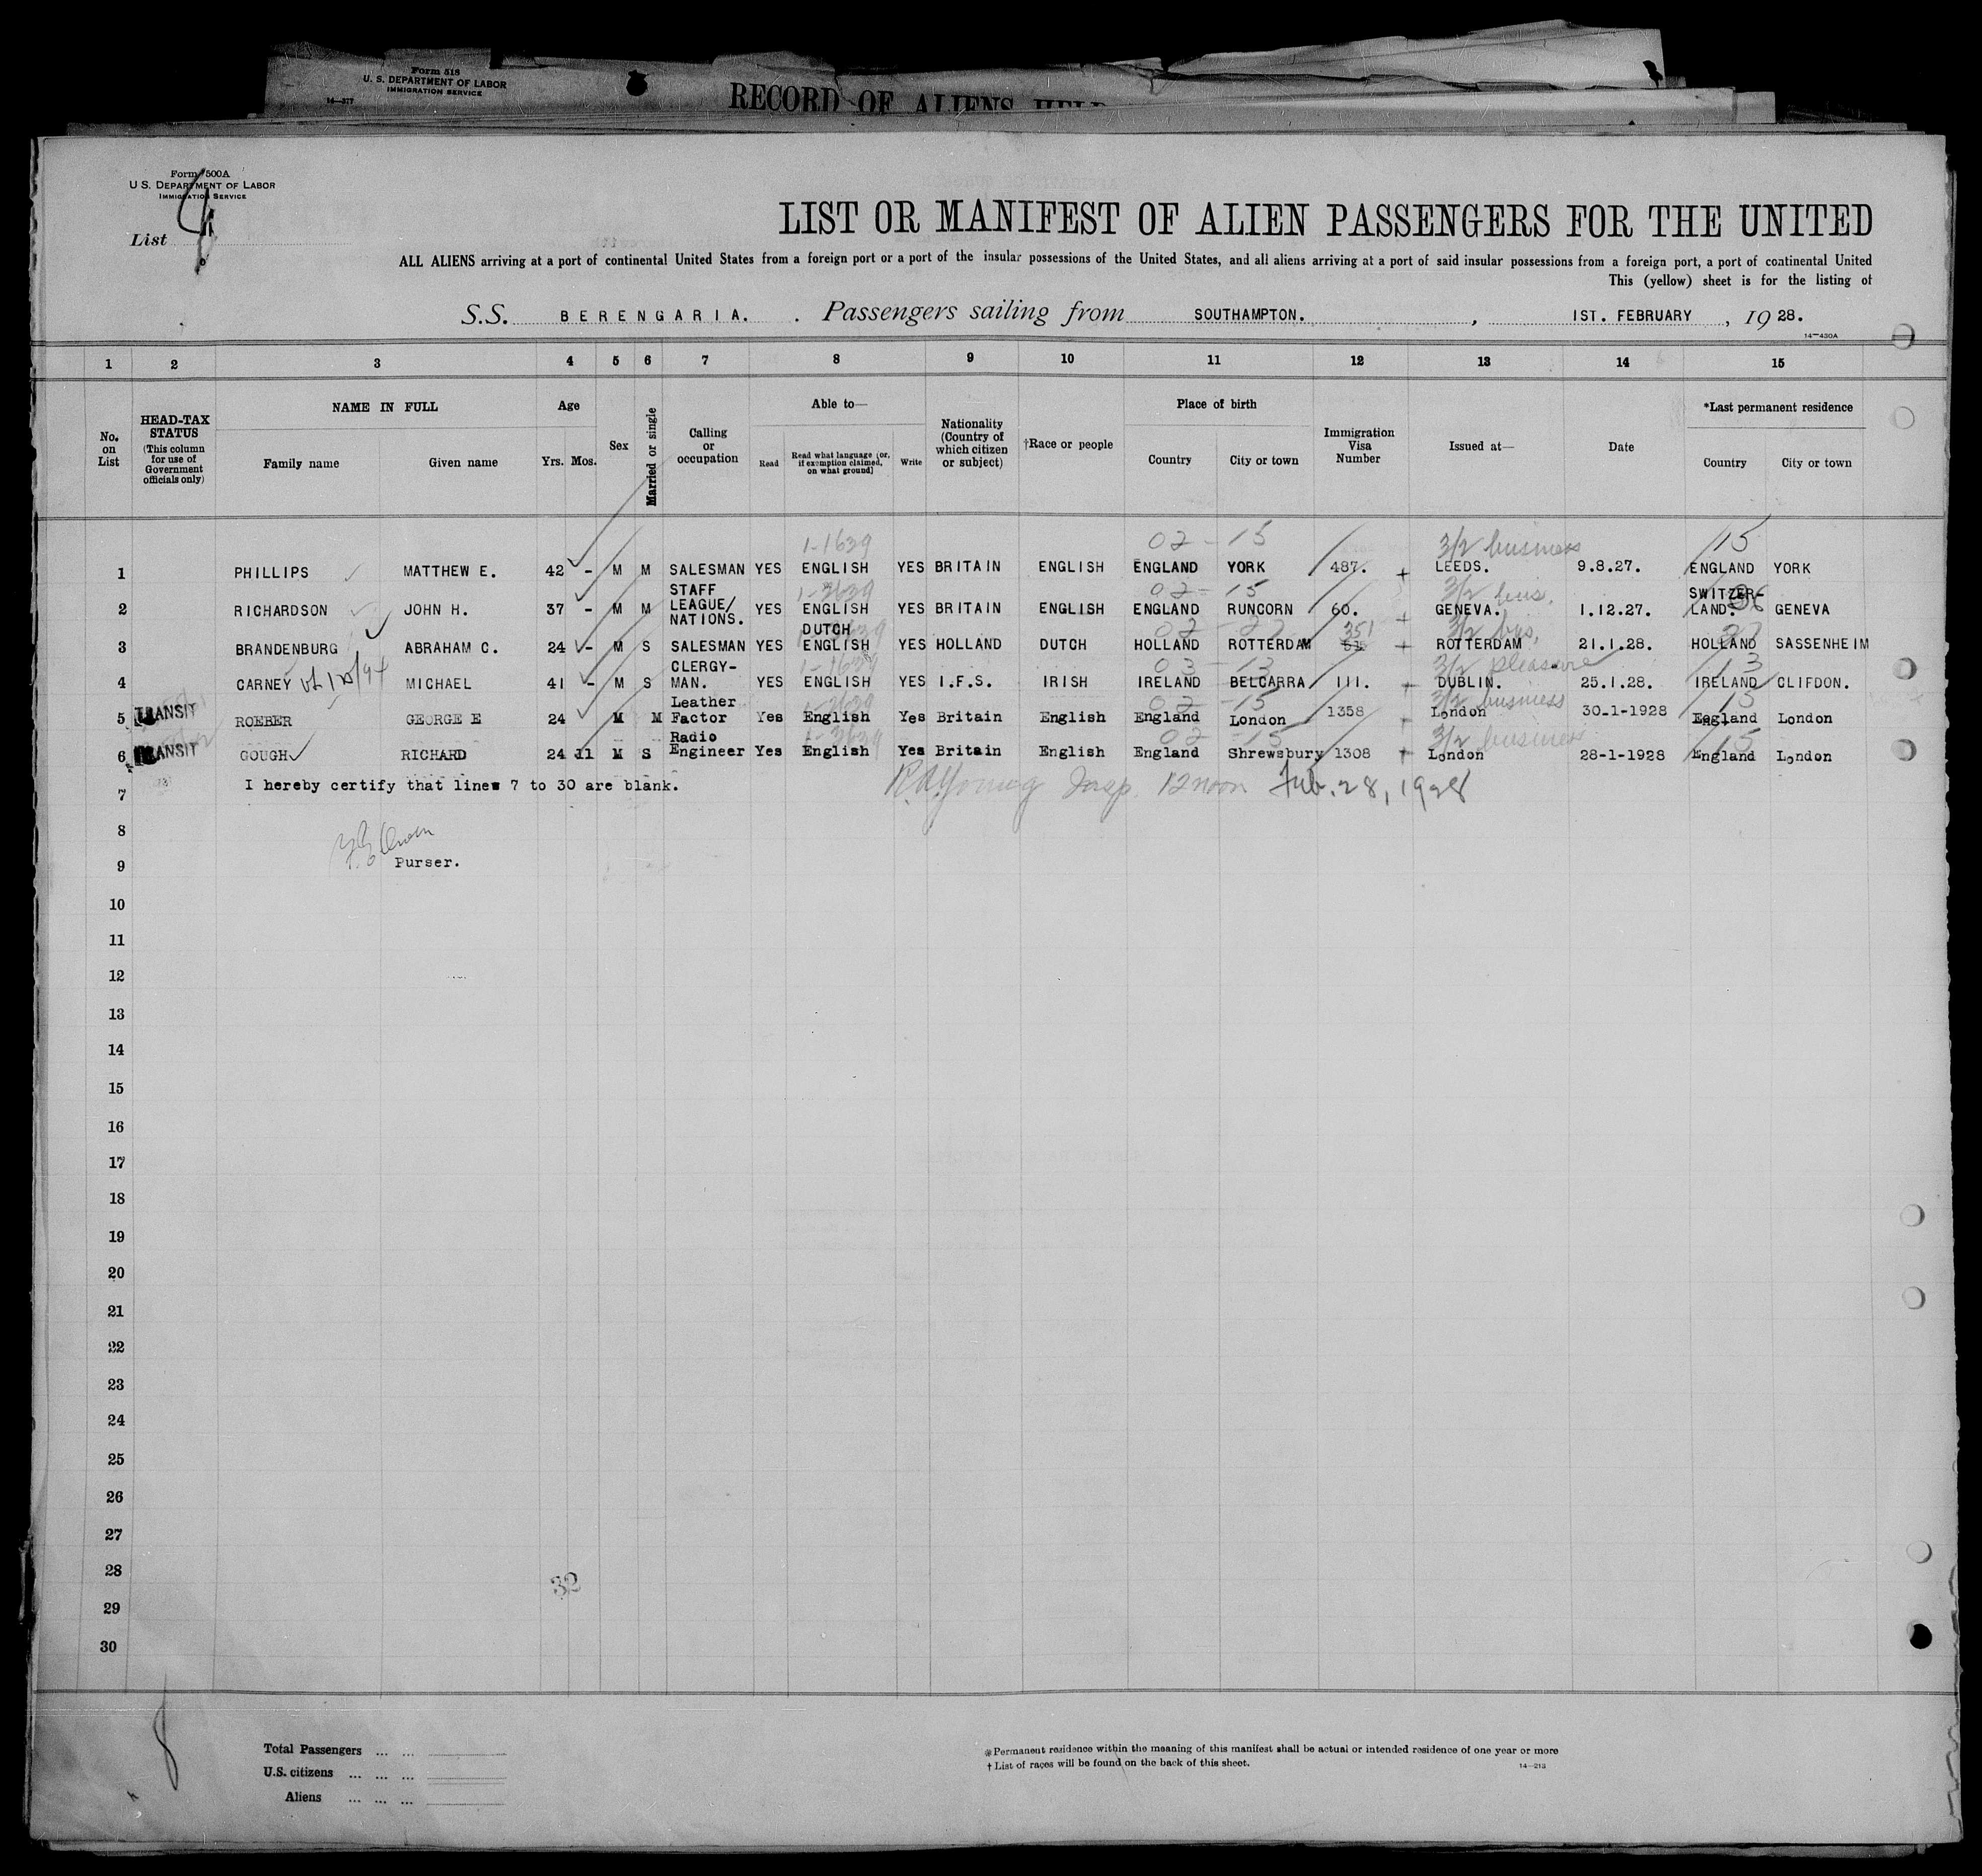 Form 518
U. S. DEPARTMENT OF LABOR
IMMIGRATION SERVICE
14—377
RECORD OF ALIENS HELD
Form 500A
U. S. DEPARTMENT OF LABOR
IMMIGRATION SERVICE
List
LIST OR MANIFEST OF ALIEN PASSENGERS FOR THE UNITED
ALL ALIENS arriving at a port of continental United States from a foreign port or a port of the insular possessions of the United States, and all aliens arriving at a port of said insular possessions from a foreign port, a port of continental United
This (yellow) sheet is for the listing of
S.S. BERENGARIA. . Passengers sailing from SOUTHAMPTON. , 1ST. FEBRUARY , 19 28.
14—430A
1 2 3 4 5 6 7 8 9 10 11 12 13 14 15
No. on List
HEAD-TAX STATUS (This column for use of Government officials only)
NAME IN FULL
Family name Given name
Age
Yrs. Mos.
Sex
Married or single
Calling or occupation
Able to—
Read Read what language (or, if exemption claimed, on what ground) Write
Nationality (Country of which citizen or subject)
†Race or people
Place of birth
Country City or town
Immigration Visa Number
Issued at—
Date
*Last permanent residence
Country City or town
1-1639 02-15 3/2 business 15
1 PHILLIPS MATTHEW E. 42 - M M SALESMAN YES ENGLISH YES BRITAIN ENGLISH ENGLAND YORK 487. LEEDS. 9.8.27. ENGLAND YORK
1-3639 02-15 3/2 bus.
2 RICHARDSON JOHN H. 37 - M M STAFF LEAGUE/ NATIONS. YES ENGLISH YES BRITAIN ENGLISH ENGLAND RUNCORN 60. GENEVA. 1.12.27. SWITZER- LAND. GENEVA
3/2 bus,
3 BRANDENBURG ABRAHAM C. 24 - M S SALESMAN YES DUTCH ENGLISH YES HOLLAND DUTCH HOLLAND ROTTERDAM 351 ROTTERDAM 21.1.28. HOLLAND SASSENHEIM
03-13 3/2 pleasure 13
4 CARNEY MICHAEL 41 - M S CLERGY- MAN. YES ENGLISH YES I.F.S. IRISH IRELAND BELCARRA 111. DUBLIN. 25.1.28. IRELAND CLIFDON.
02-15 3/2 business 15
5 TRANSIT ROEBER GEORGE E 24 M M Leather Factor Yes English Yes Britain English England London 1358 London 30-1-1928 England London
02-15 3/2 business 15
6 TRANSIT GOUGH RICHARD 24 11 M S Radio Engineer Yes English Yes Britain English England Shrewsbury 1308 London 28-1-1928 England London
7 I hereby certify that lines 7 to 30 are blank. Young Insp. 12 noon Feb. 28, 1928
8
9 Purser.
10
11
12
13
14
15
16
17
18
19
20
21
22
23
24
25
26
27
28
32
29
30
Total Passengers ... ...
U.S. citizens ... ... ...
Aliens ... ... ...
*Permanent residence within the meaning of this manifest shall be actual or intended residence of one year or more
† List of races will be found on the back of this sheet.
14—213